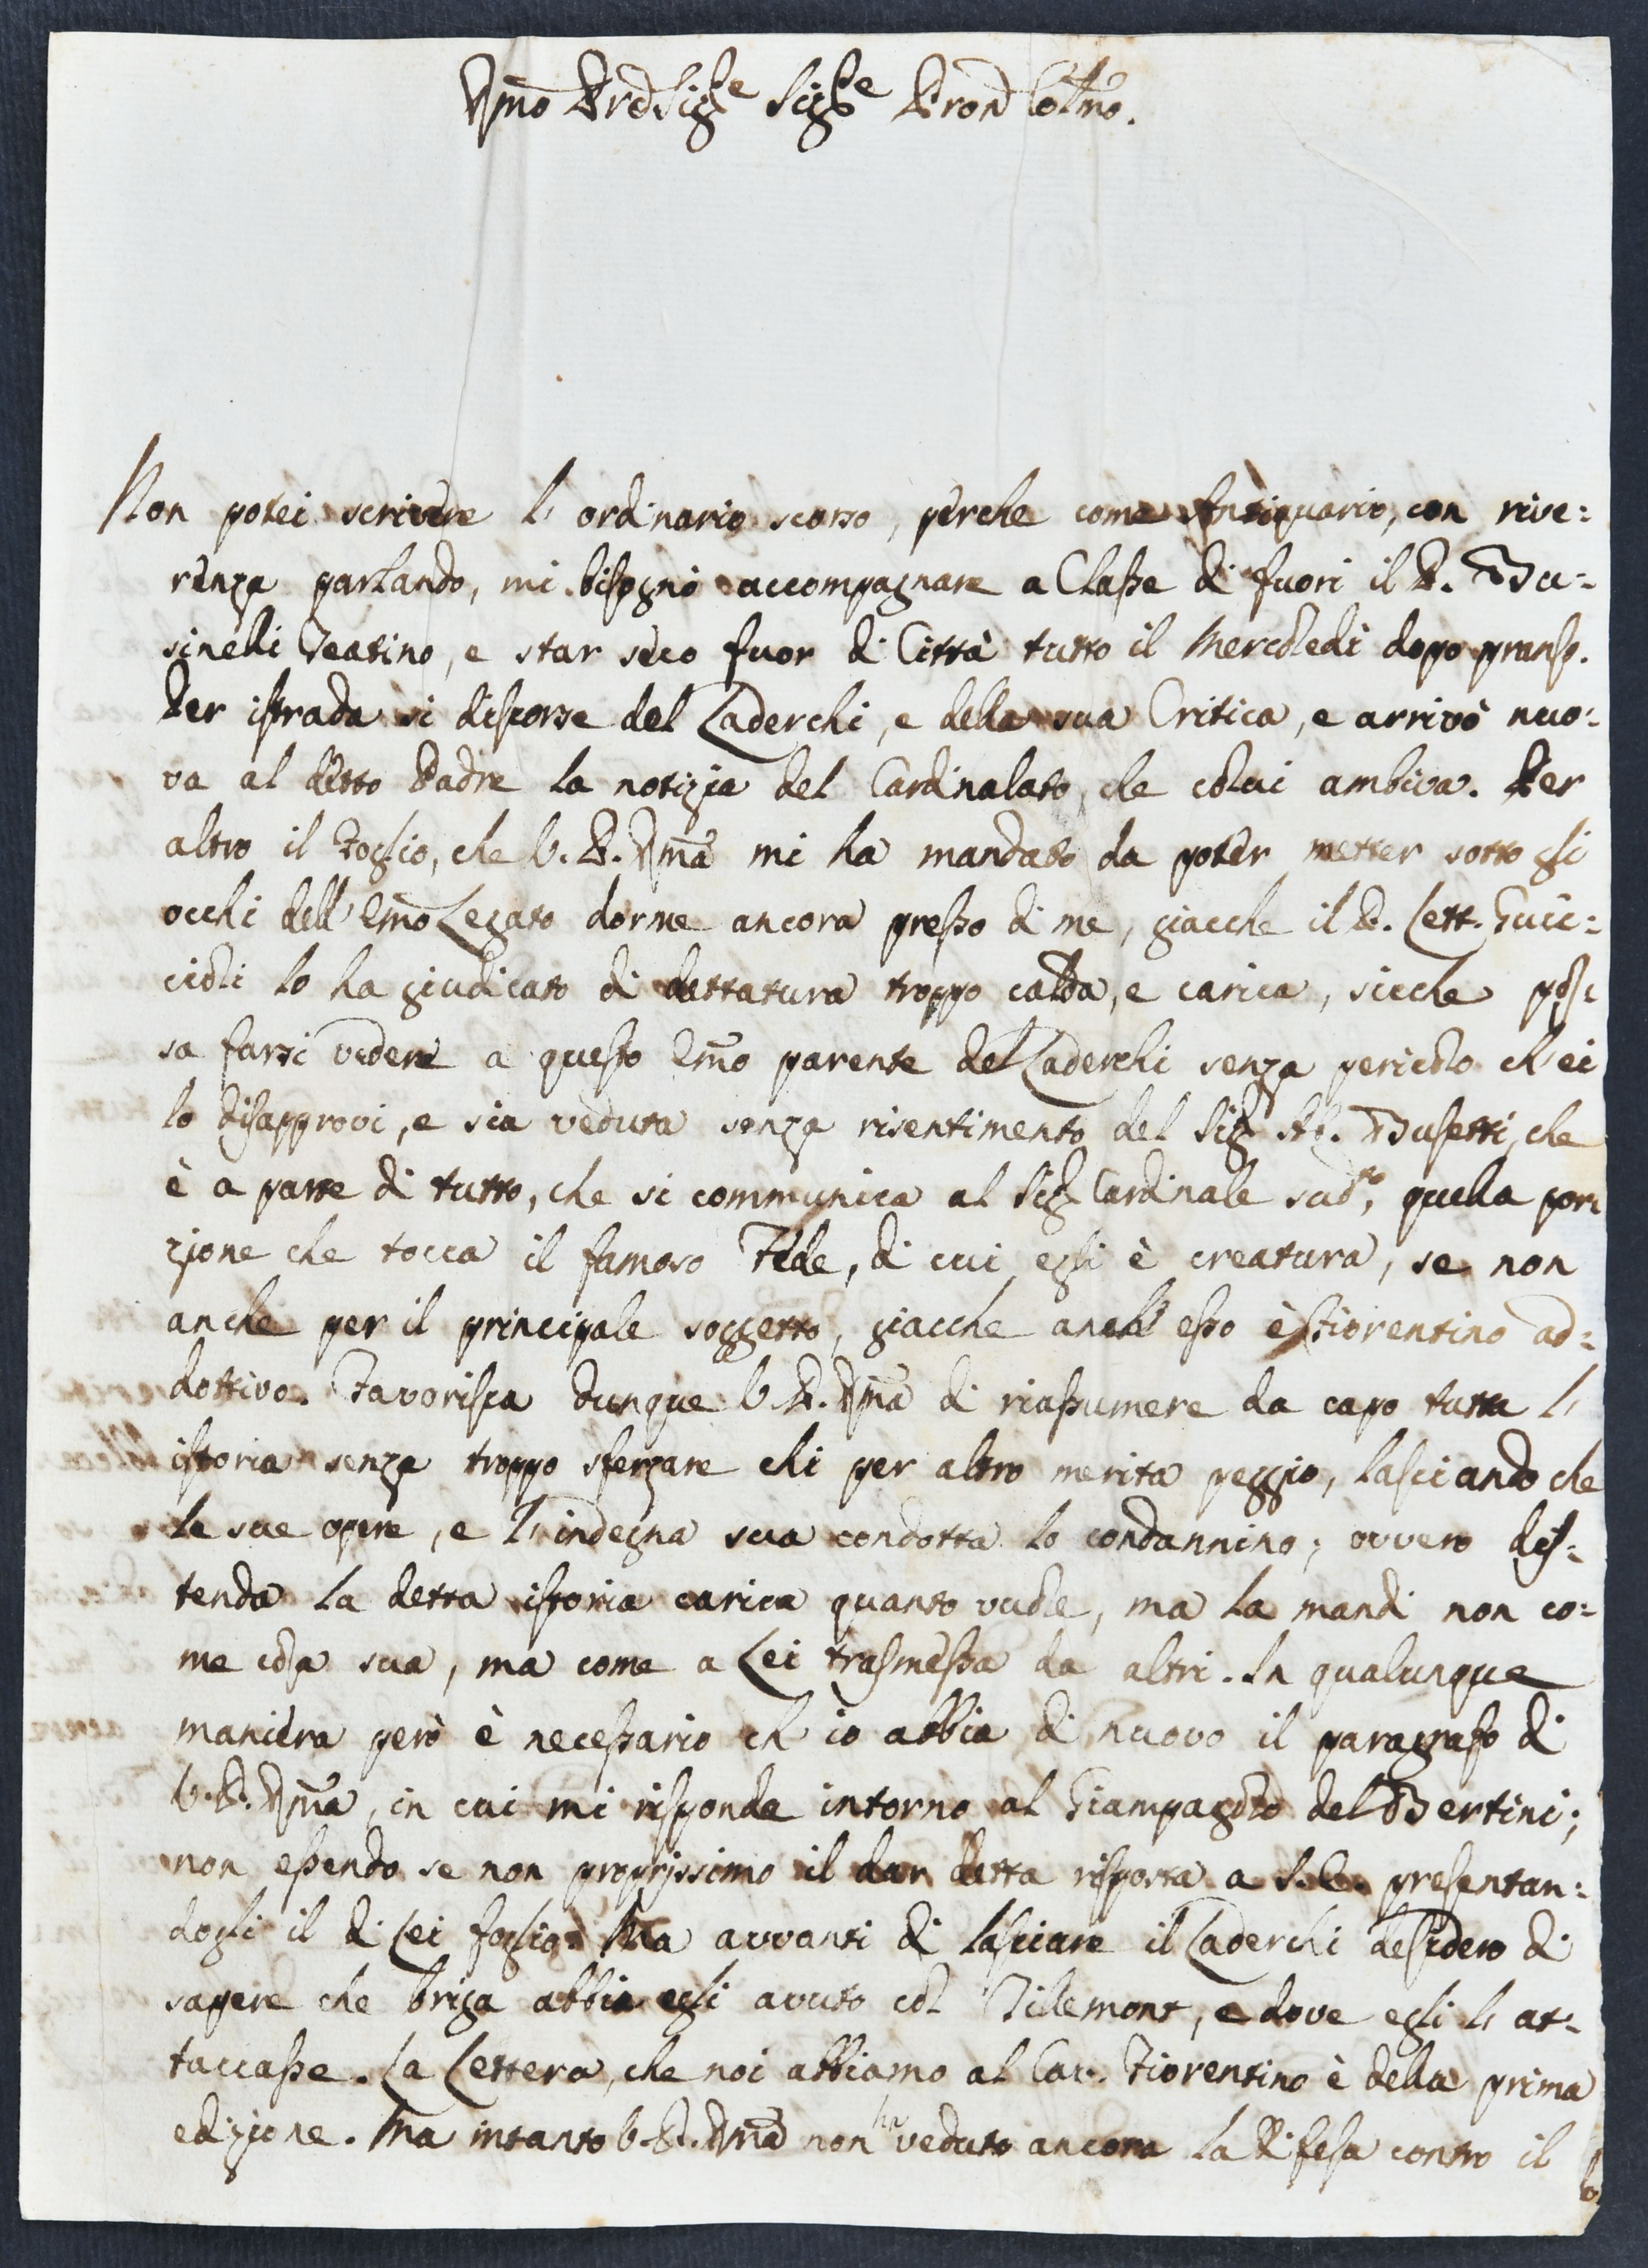 Rmo Prē Sigre Sigre Pron Colmo.
Non potei scrivere l' ordinario scorso, perche come Antiquario, con rive=
renza parlando, mi bisognò accompagnare a Classe di fuori il P. Bu=
sinelli Teatino, e star seco fuor di Città tutto il Mercoledi dopo pranso.
Per istrada si discorse del Laderchi, e della sua Critica, e arrivò nuo=
va al detto Padre la notizia del Cardinalato, che colui ambiva. Per
altro il Foglio, che V. P. Rma mi ha mandato da poter metter sotto gli
occhi dell' Emo Legato dorme ancora presso di me, giacche il P. Lett. Guic=
cioli lo ha giudicato di dettatura troppo calda, e carica, sicche pos=
sa farsi vedere a questo Emo parente del Laderchi senza pericolo ch' ei
lo disapprovi, e sia veduta senza risentimento del Sig. Ab. Busetti, che
è a parte di tutto, che si communica al Sig. Cardinale sudto, quella por=
zione che tocca il famoso Fede, di cui egli è creatura, se non
anche per il principale soggetto, giacche anch' esso è Fiorentino ad=
dottivo. Favorisca dunque V. P. Rma di riassumere da capo tutta l'
istoria senza troppo sferzare chi per altro merita peggio, lasciando che
le sue opere, e l' indegna sua condotta lo condannino; ovvero dis=
tenda la detta istoria carica quanto vuole, ma la mandi non co=
me cosa sua, ma come a Lei trasmessa da altri. In qualunque
maniera però è necessario ch' io abbia di nuovo il paragrafo di
V. P. Rma, in cui mi risponde intorno al Giampagolo del Bertini;
non essendo se non proprissimo il dar detta risposta a S. E. presentan=
dogli il di Lei foglio. Ma avvanti di lasciare il Laderchi desidero di
sapere che briga abbia egli avuto col Tillemont, e dove egli l' at=
taccasse. La Lettera, che noi abbiamo al Cav. Fiorentino è della prima
edizione. Ma intanto V. P. Rma non ha veduto ancora la Difesa contro il